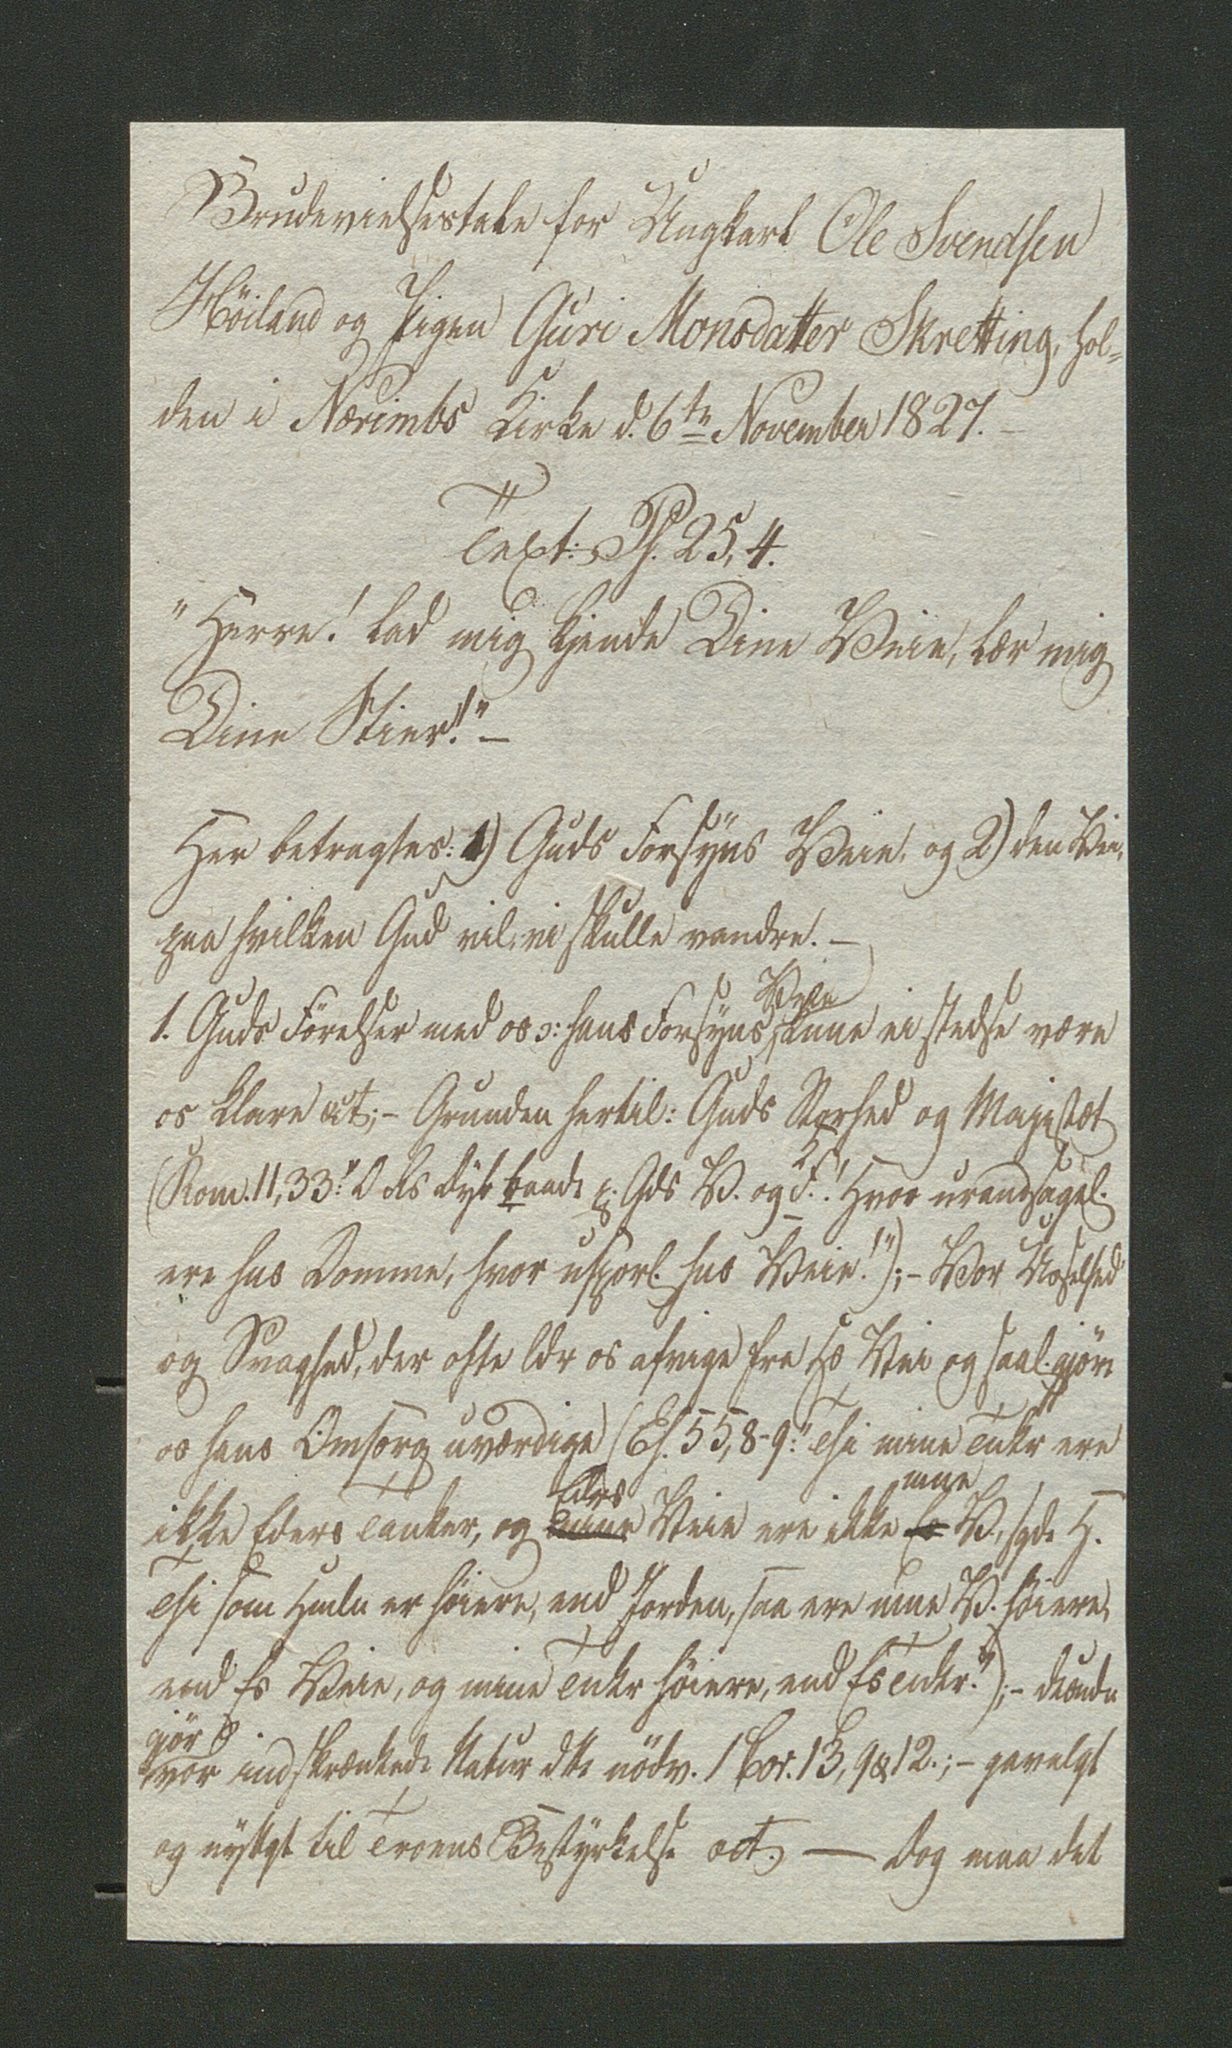 Brudevielsestale for Ungkarl Ole Svendsen
Höiland og Pigen Guri Monsdatter Skretting, hol-
den i Nærimbs Kirke d. 6te November 1827. -
Text: Ps. 25, 4.
"Herre! lad mig kjende Dine Veie, lær mig
Dine Stier!" -
Her betragtes: 1) Guds Forsyns Veie, og 2) den Vei,
paa hvilken Gud vil, vi skulle vandre. -
1. Guds Förelser med os ɔ: hans Forsyns Veie kunne ei stedse være
os klare etc; - Grunden hertil: Guds Storhed og Majestæt
(Rom. 11, 33: "O Rs Dyb baade p. Gds V. og K.! Hvor urandsagel.
ere hns Domme, hvor usporl. hns Veie!"); - Vor Uselhed
og Svaghed, der ofte ldr os afvige fra Hs Vei og saal. gjöre
os hans Omsorg uværdige (Es. 55, 8-9: "Thi mine Tnkr ere
ikke Eders Tanker, og Edrs Veie ere ikke mne V., sgde H.
Thi som Hmln er höiere, end Jorden, saa ere mne V. höiere,
end Es Veie, og mine Tnkr höiere, end Es Tnkr."); - desudn
gjör vor indskrænkede Natur dtte nödv. 1 Cor. 13, 9 & 12.; - gavnlgt
og nyttgt til Troens Bestyrkelse etc. — Dog maa det